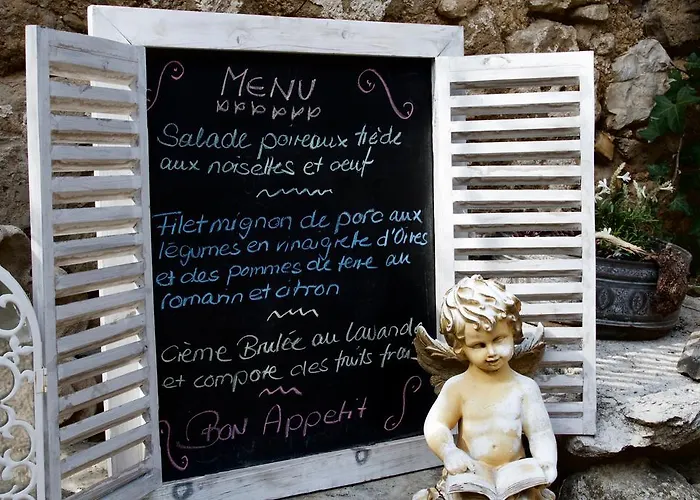 MENU
Salade poireaux tiède
aux noisettes et oeuf
Filet mignon de porc aux
légumes en vinaigrete d'Olives
et des pommes de terre au
romann et citron
Crème Brulée au lavande
et compote des fruits frais
Bon Appetit